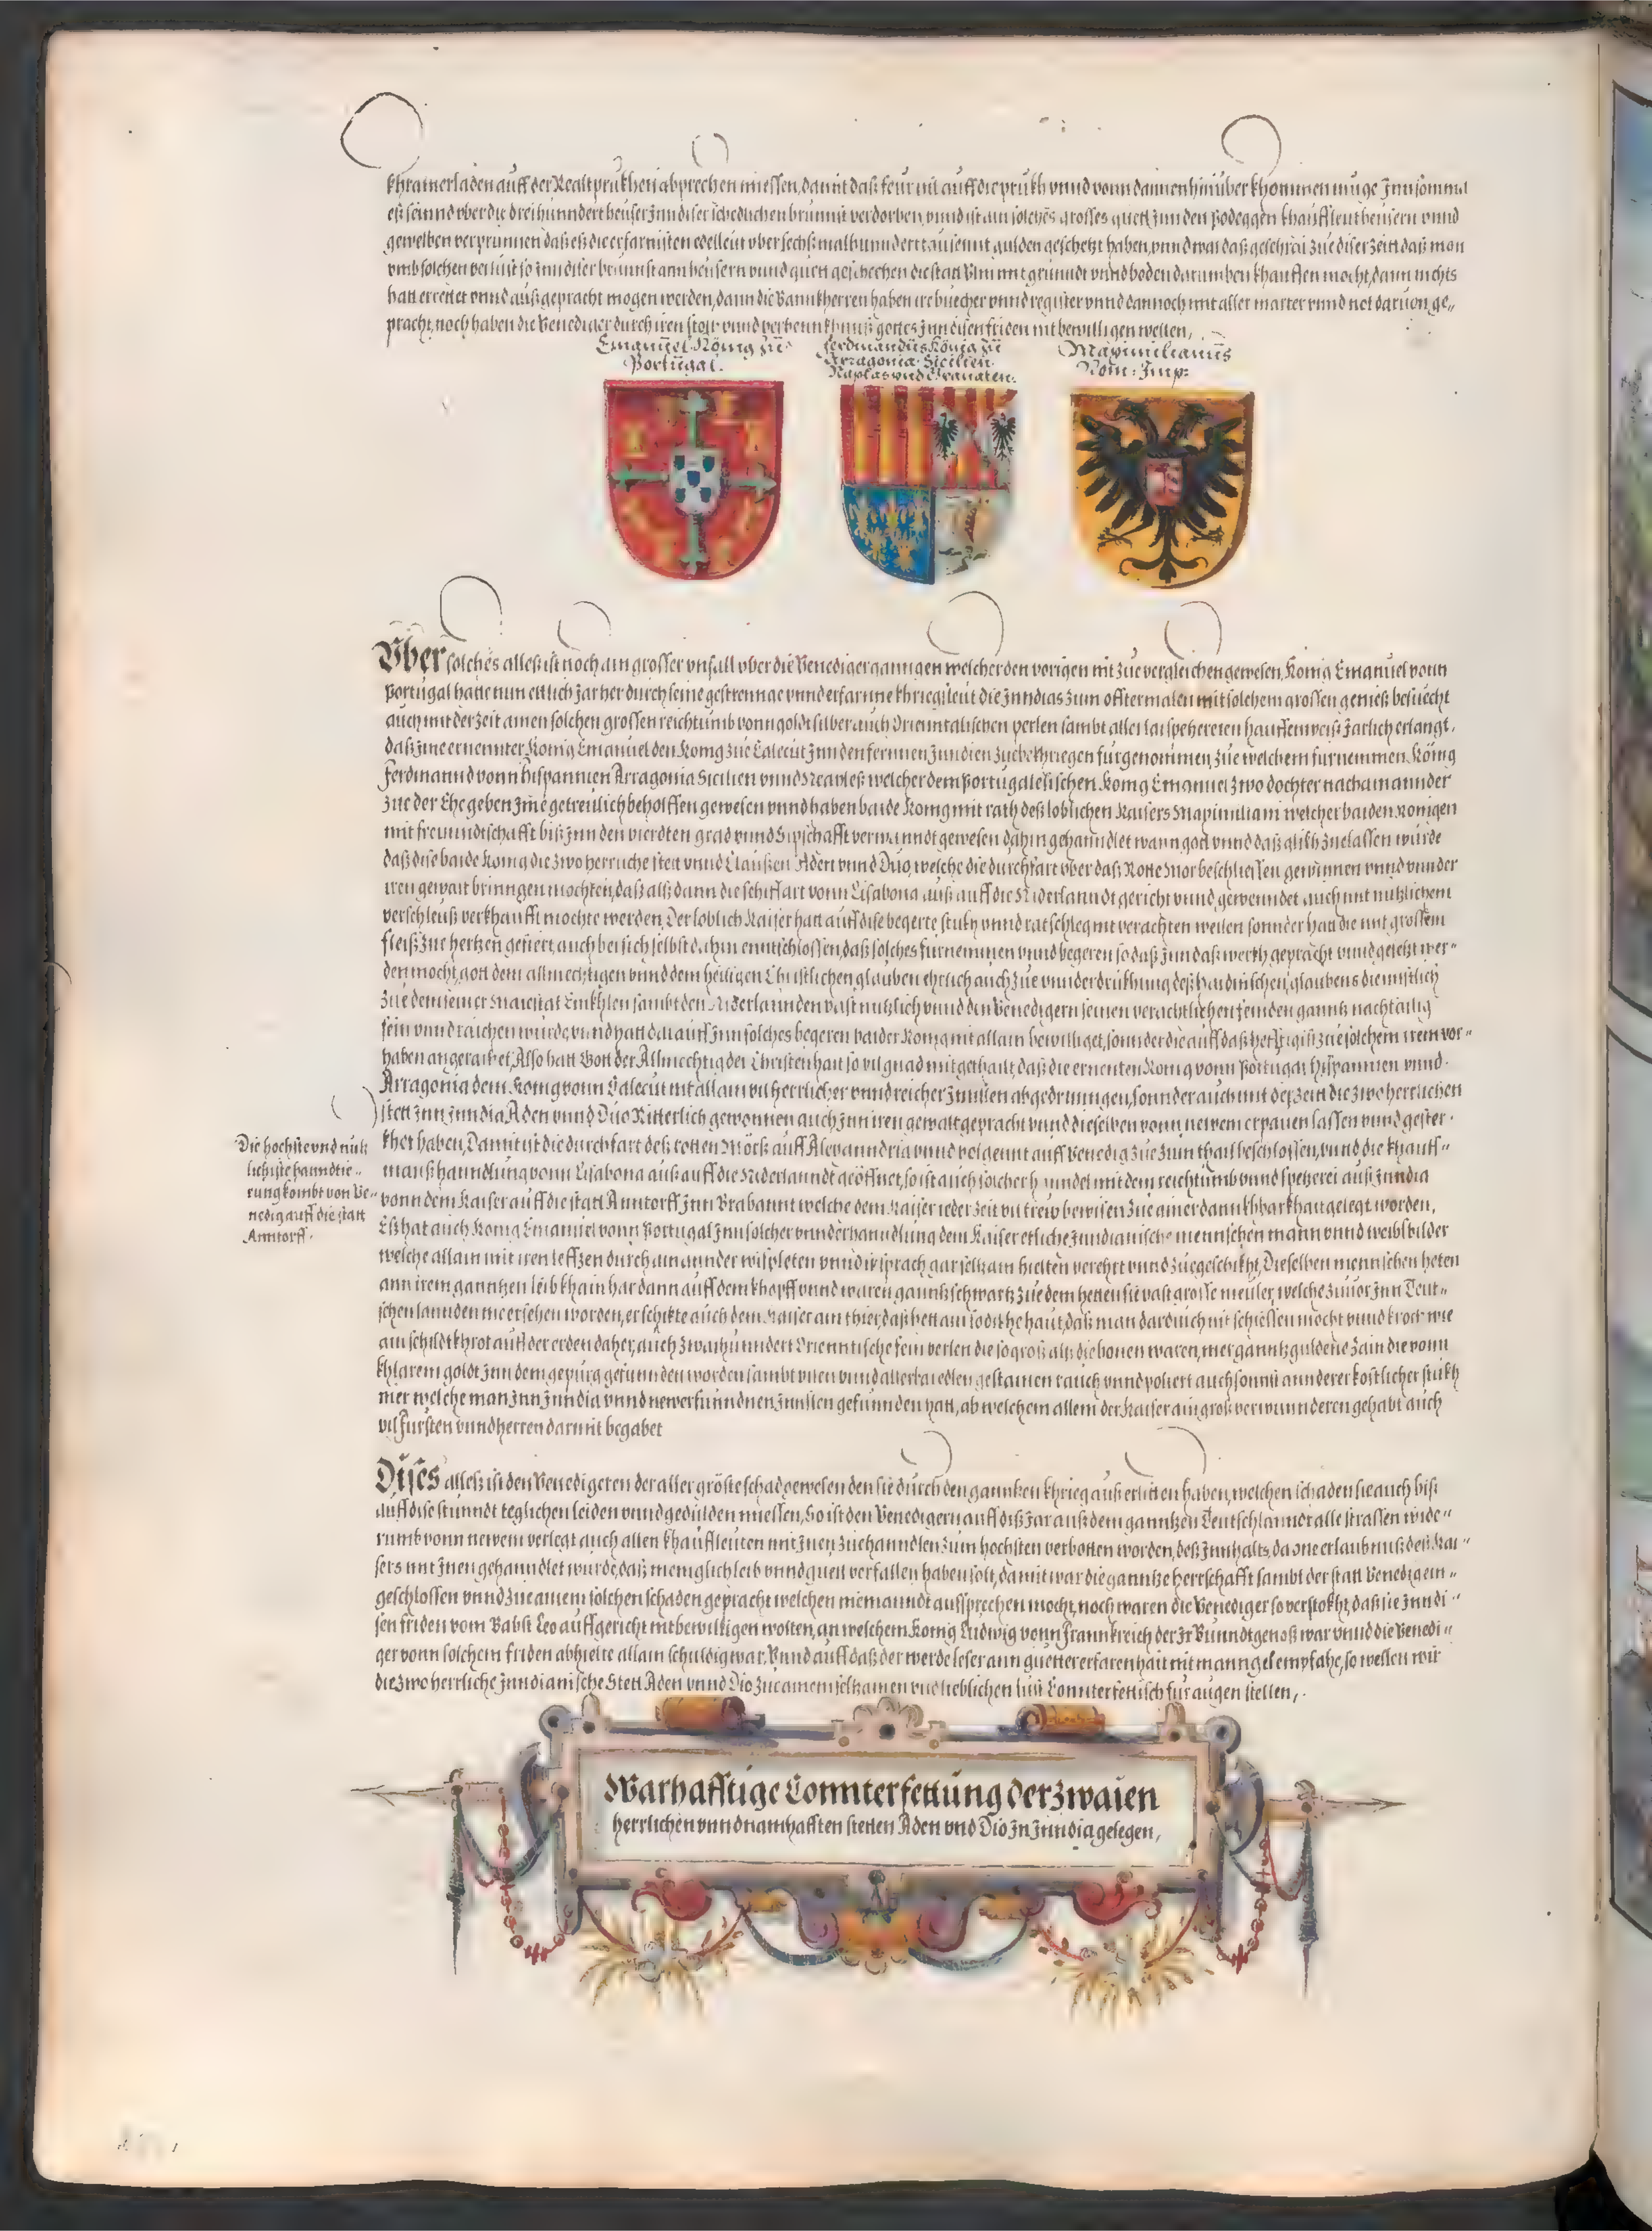 khramerladen auff der Realtprukhen abprechen miessen, damit daß feur nit auff die prukh vnnd vonn dannen hinüber khommen muge Inn somma
eß seinnd vber die dreihunndert heuser Inn diser schedlichen brunnst verdorben vnnd ist ain solches grosses guett Inn den Bodeggen khauffleutheusern vnnd
gewelben verprunnen daß es die erfarnisten edelleut vber sechßmalhunnderttausennt gulden geschetzt haben, vnnd war daß geschrai zue diser zeitt daß man
vmb solchen verlust so Inn diser brunnst ann heusern vnnd guett geschechen die statt Vlm mit grunndt vnnd boden darumben khauffen mocht, dann nichts
hatt errettet vnnd außgepracht mogen werden, dann die Bannkherren haben ire buecher vnnd register vnnd dannoch mit aller marter vnnd not daruon ge„
pracht, noch haben die Venediger durch iren stoltz vnnd verhennkhnuß gottes Inn disen friden nit bewilligen wellen,
Emanuel König zü
Portügal.
Ferdinandüs König zü
Arragonia. Sicilien.
Naplas vnd Granaten.
Maximilianüs
Rom: Imp:
Vber solches alles ist noch ain grosser vnfall vber die Venediger ganngen welcher den vorigen nit zue vergleichen gewesen, König Emanuel vonn
Portugal hatte nun ettlich Jar her durch seine gestrennge vnnd erfarnne khriegsleut die Inndias zum offtermalen mit solchem grossen genieß besuecht
auch mit der zeit ainen solchen grossen reichtumb vonn goldt silber auch Orienntalischen perlen sambt allerlai spetzereien hauffenweiß Jarlich erlangt,
daß Ime ernennter Konig Emanuel den Konig zue Calecut Inn den ferrnnen Inndien zue bekhriegen furgenommen, zue welchem furnemmen König
Ferdinannd vonn Hispannien Arragonia Sicilien vnnd Neapless welcher dem Portugalesischen Konig Emanuel zwo dochter nach ainannder
zue der Ehe geben Ime getreulich beholffen gewesen vnnd haben baide Konig mit rath deß loblichen Kaisers Maximiliani welcher baiden Konigen
mit freunndtschafft biß Inn den vierdten grad vnnd Sipschafft verwanndt gewesen dahin gehanndlet wann gott vnnd daß glikh zuelassen wurde
daß dise baide Konig die zwo herrliche stett vnnd Claußen Aden vnnd Duo, welche die durchfart vber daß Rotte Mor beschliessen gewinnen vnnd vnnder
iren gewalt bringen mochten, daß alßdann die schiffart vonn Lisabona auß auff die Niderlanndt gericht vnnd gewenndet auch mit nutzlichem
verschleuß verkhaufft mochte werden, Der loblich Kaiser hatt auff dise begerte stukh vnnd ratschleg nit verachten wellen sonnder hatt die mit grossem
fleiß zue hertzen gefiert, auch bei sich selbst dahin enntschlossen, daß solches furnemmen vnnd begeren so daß Inn daß werkh gepracht vnnd gesetzt wer„
den mocht, gott dem allmechtigen vnnd dem heiligen Christlichen glauben ehrlich auch zue vnnderdrukhung deß haidnischen glaubens diennstlich
zue dem seiner Maiestat Enikhlen sambt den Niderlannden vast nutzlich vnnd den Venedigern seinen verachtlichen feinden ganntz nachtailig
sein vnnd raichen wurde, vnnd hatt darauff Inn solches begeren baider Konig nit allain bewilliget, sonnder die auff daß hefftigist zue solchem irem vor„
haben angeraitzet, Also hatt Gott der Allmechtig der Christenhait so vil gnad mitgethailt, daß die ernenten Konig vonn Portugal Hispannien vnnd
Arragonia dem Konig vonn Calecut nit allain vil herrlicher vnnd reicher Innßlen abgedrungen, sonnder auch mit der zeit die zwo herrlichen
stett Inn Inndia Aden vnnd Duo Ritterlich gewonnen auch Inn iren gewalt gepracht vnnd dieselben vonn newem erpauen lassen vnnd gester„
kht haben, Damit ist die durchfart deß rotten Mörß auff Alexanndria vnnd volgennt auff Venedig zue zum thail beschlossen, vnnd die khauff„
manßhanndlung vonn Lisabona auß auff die Niderlanndt geöffnet, so ist auch solcher hanndel mit dem reichtumb vnnd spetzerei auß Inndia
vonn dem Kaiser auff die statt Anntorff Inn Brabannt welche dem Kaiser ieder zeit vil trew bewisen zue ainer dannkhbarkhait gelegt worden,
Eß hat auch Konig Emanuel vonn Portugal Inn solcher vnnderhanndlung dem Kaiser etliche Inndianische mennschen mann vnnd weibßbilder
welche allain mit iren leffzen durch ainannder wispleten vnnd ir sprach gar seltzam hielten verehrt vnnd zuegeschikht, Dieselben mennschen heten
ann irem ganntzen leib khain har dann auff dem khopff vnnd waren ganntz schwartz zue dem hetten sie vast grosse meuler, welche zuuor Inn Teut„
schen lannden nie ersehen worden, er schikte auch dem Kaiser ain thier, daß hett ain so dikhe haut, daß man dardurch nit schiessen mocht vnnd kroch wie
ain schildtkhrot auff der erden daher, auch zwaihunndert Orienntische fein perlen die so groß alß die bonen waren, mer ganntz guldene Zain die vonn
khlarem goldt Inn dem gepurg gefunnden worden sambt vilen vnnd allerlai edlen gestainen rauch vnnd poliert auch sonnst annderer kostlicher stukh
mer welche man Inn Inndia vnnd newerfunndnen Innßlen gefunnden hatt, ab welchem allem der Kaiser ain groß verwunnderen gehabt auch
vil Fursten vnnd herren darmit begabet
Die hochste vnd nutz
lichiste hanndtie„
rung kombt von Ve„
nedig auff die statt
Anntorff.
Dises alleß ist den Venedigeren der aller gröste schad gewesen den sie durch den ganntzen khrieg auß erlitten haben, welchen schaden sie auch biß
auff dise stunndt teglichen leiden vnnd gedulden miessen, So ist den Venedigern auff diß Jar auß dem ganntzen Teutschlanndt alle strassen wide„
rumb vonn newem verlegt auch allen khauffleuten mit Inen zuehanndlen zum hochsten verbotten worden, deß Innhalts, da one erlaubnuß deß Kai„
sers mit Inen gehanndlet wurde, daß meniglich leib vnnd guett verfallen haben solt, damit war die ganntze herrschafft sambt der statt Venedig ein„
geschlossen vnnd zue ainem solchen schaden gepracht welchen niemanndt aussprechen mocht, noch waren die Venediger so verstokht, daß sie Inn di„
sen friden vom Babst Leo auffgericht nit bewilligen wolten, an welchem Konig Ludwig vonn Frannkreich der Ir Bunndtgenoß war vnnd die Venedi„
ger vonn solchem friden abhielte allain schuldig war, Vnnd auff daß der werde leser ann guetter erfarenhait nit manngel empfahe, so wellen wir
die zwo herrliche Inndianische Stett Aden vnnd Dio zue ainem seltzamen vnd lieblichen lust Connterfettisch fur augen stellen,
Warhafftige Connterfettüng der zwaien
herrlichen vnnd namhafften stetten Aden vnd Dio In Inndia gelegen,